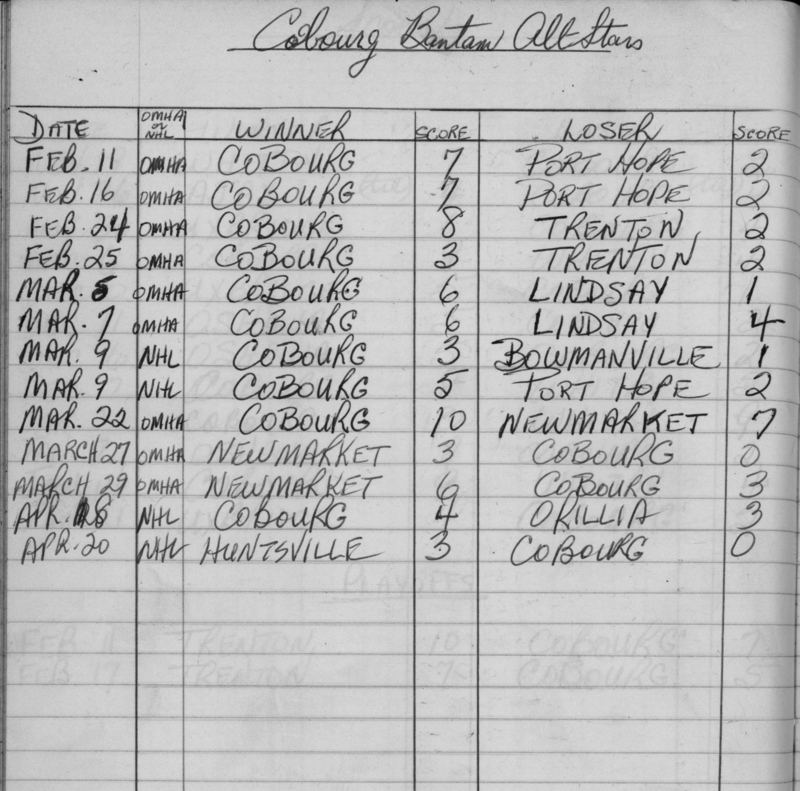 Cobourg Bantam All Stars
DATE OMHA or NHL WINNER SCORE LOSER SCORE
FEB. 11 OMHA COBOURG 7 PORT HOPE 2
FEB. 16 OMHA COBOURG 7 PORT HOPE 2
FEB. 24 OMHA COBOURG 8 TRENTON 2
FEB. 25 OMHA COBOURG 3 TRENTON 2
MAR. 5 OMHA COBOURG 6 LINDSAY 1
MAR. 7 OMHA COBOURG 6 LINDSAY 4
MAR. 9 NHL COBOURG 3 BOWMANVILLE 1
MAR. 9 NHL COBOURG 5 PORT HOPE 2
MAR. 22 OMHA COBOURG 10 NEWMARKET 7
MARCH 27 OMHA NEWMARKET 3 COBOURG 0
MARCH 29 OMHA NEWMARKET 6 COBOURG 3
APR. 18 NHL COBOURG 4 ORILLIA 3
APR. 20 NHL HUNTSVILLE 3 COBOURG 0
PLAYOFFS
FEB 11 TRENTON 10 COBOURG 7
FEB 17 TRENTON 7 COBOURG 5